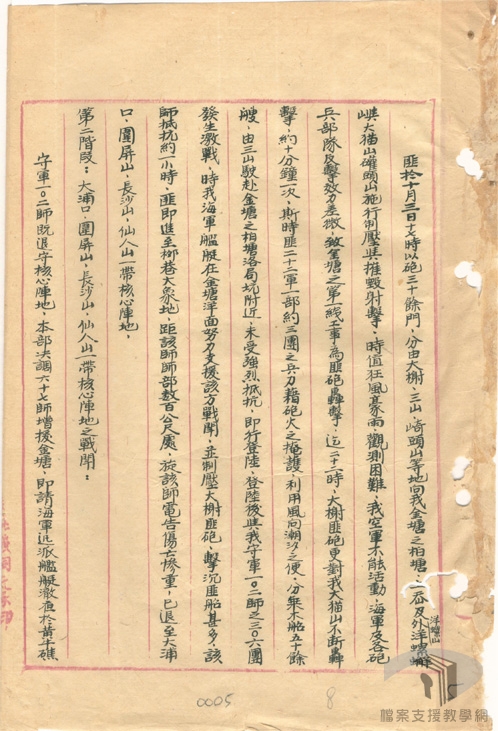 匪於十月三日十七時以砲三十餘門，分由大榭，三山，崎頭山等地向我金塘之柏塘，
洋螺山
嶼大猫山礶頭山施行制壓與摧毀射擊，時值狂風豪雨，觀測困難，我空軍不能活動，海軍及各砲
兵部隊反擊效力差微，致金塘之第一线工事，為匪砲轟擊，迄二十二時，大榭匪砲更對我大猫山不断轟
擊，約十分鐘一次，斯時匪二十二軍一部約三團之兵力藉砲火之掩護，利用風向潮汐之便，分乘木船五十餘
艘，由三山駛赴金塘之柏塘洛局坑附近，未受強烈抵抗，即行登陸，登陸後與我守軍一〇二師之三〇六團
發生激戰，時我海軍艦艇在金塘洋面努力支援該方戰鬪，並制壓大榭匪砲，擊沉匪船甚多，該
師抵抗約一小時，匪即進至柳巷大象地，距該師師部数百公尺處，旋該師電告傷亡慘重，已退至大浦
口，圍屏山，長沙山，仙人山一帶核心陣地，
第二階段：大浦口，圍屏山，長沙山，仙人山一帶核心陣地之戰鬪：
守軍一〇二師既退守核心陣地，本部決調六十七師增援金塘，即請海軍迅派艦艇澈夜於黃牛礁
0005
8
檔案支援教學網